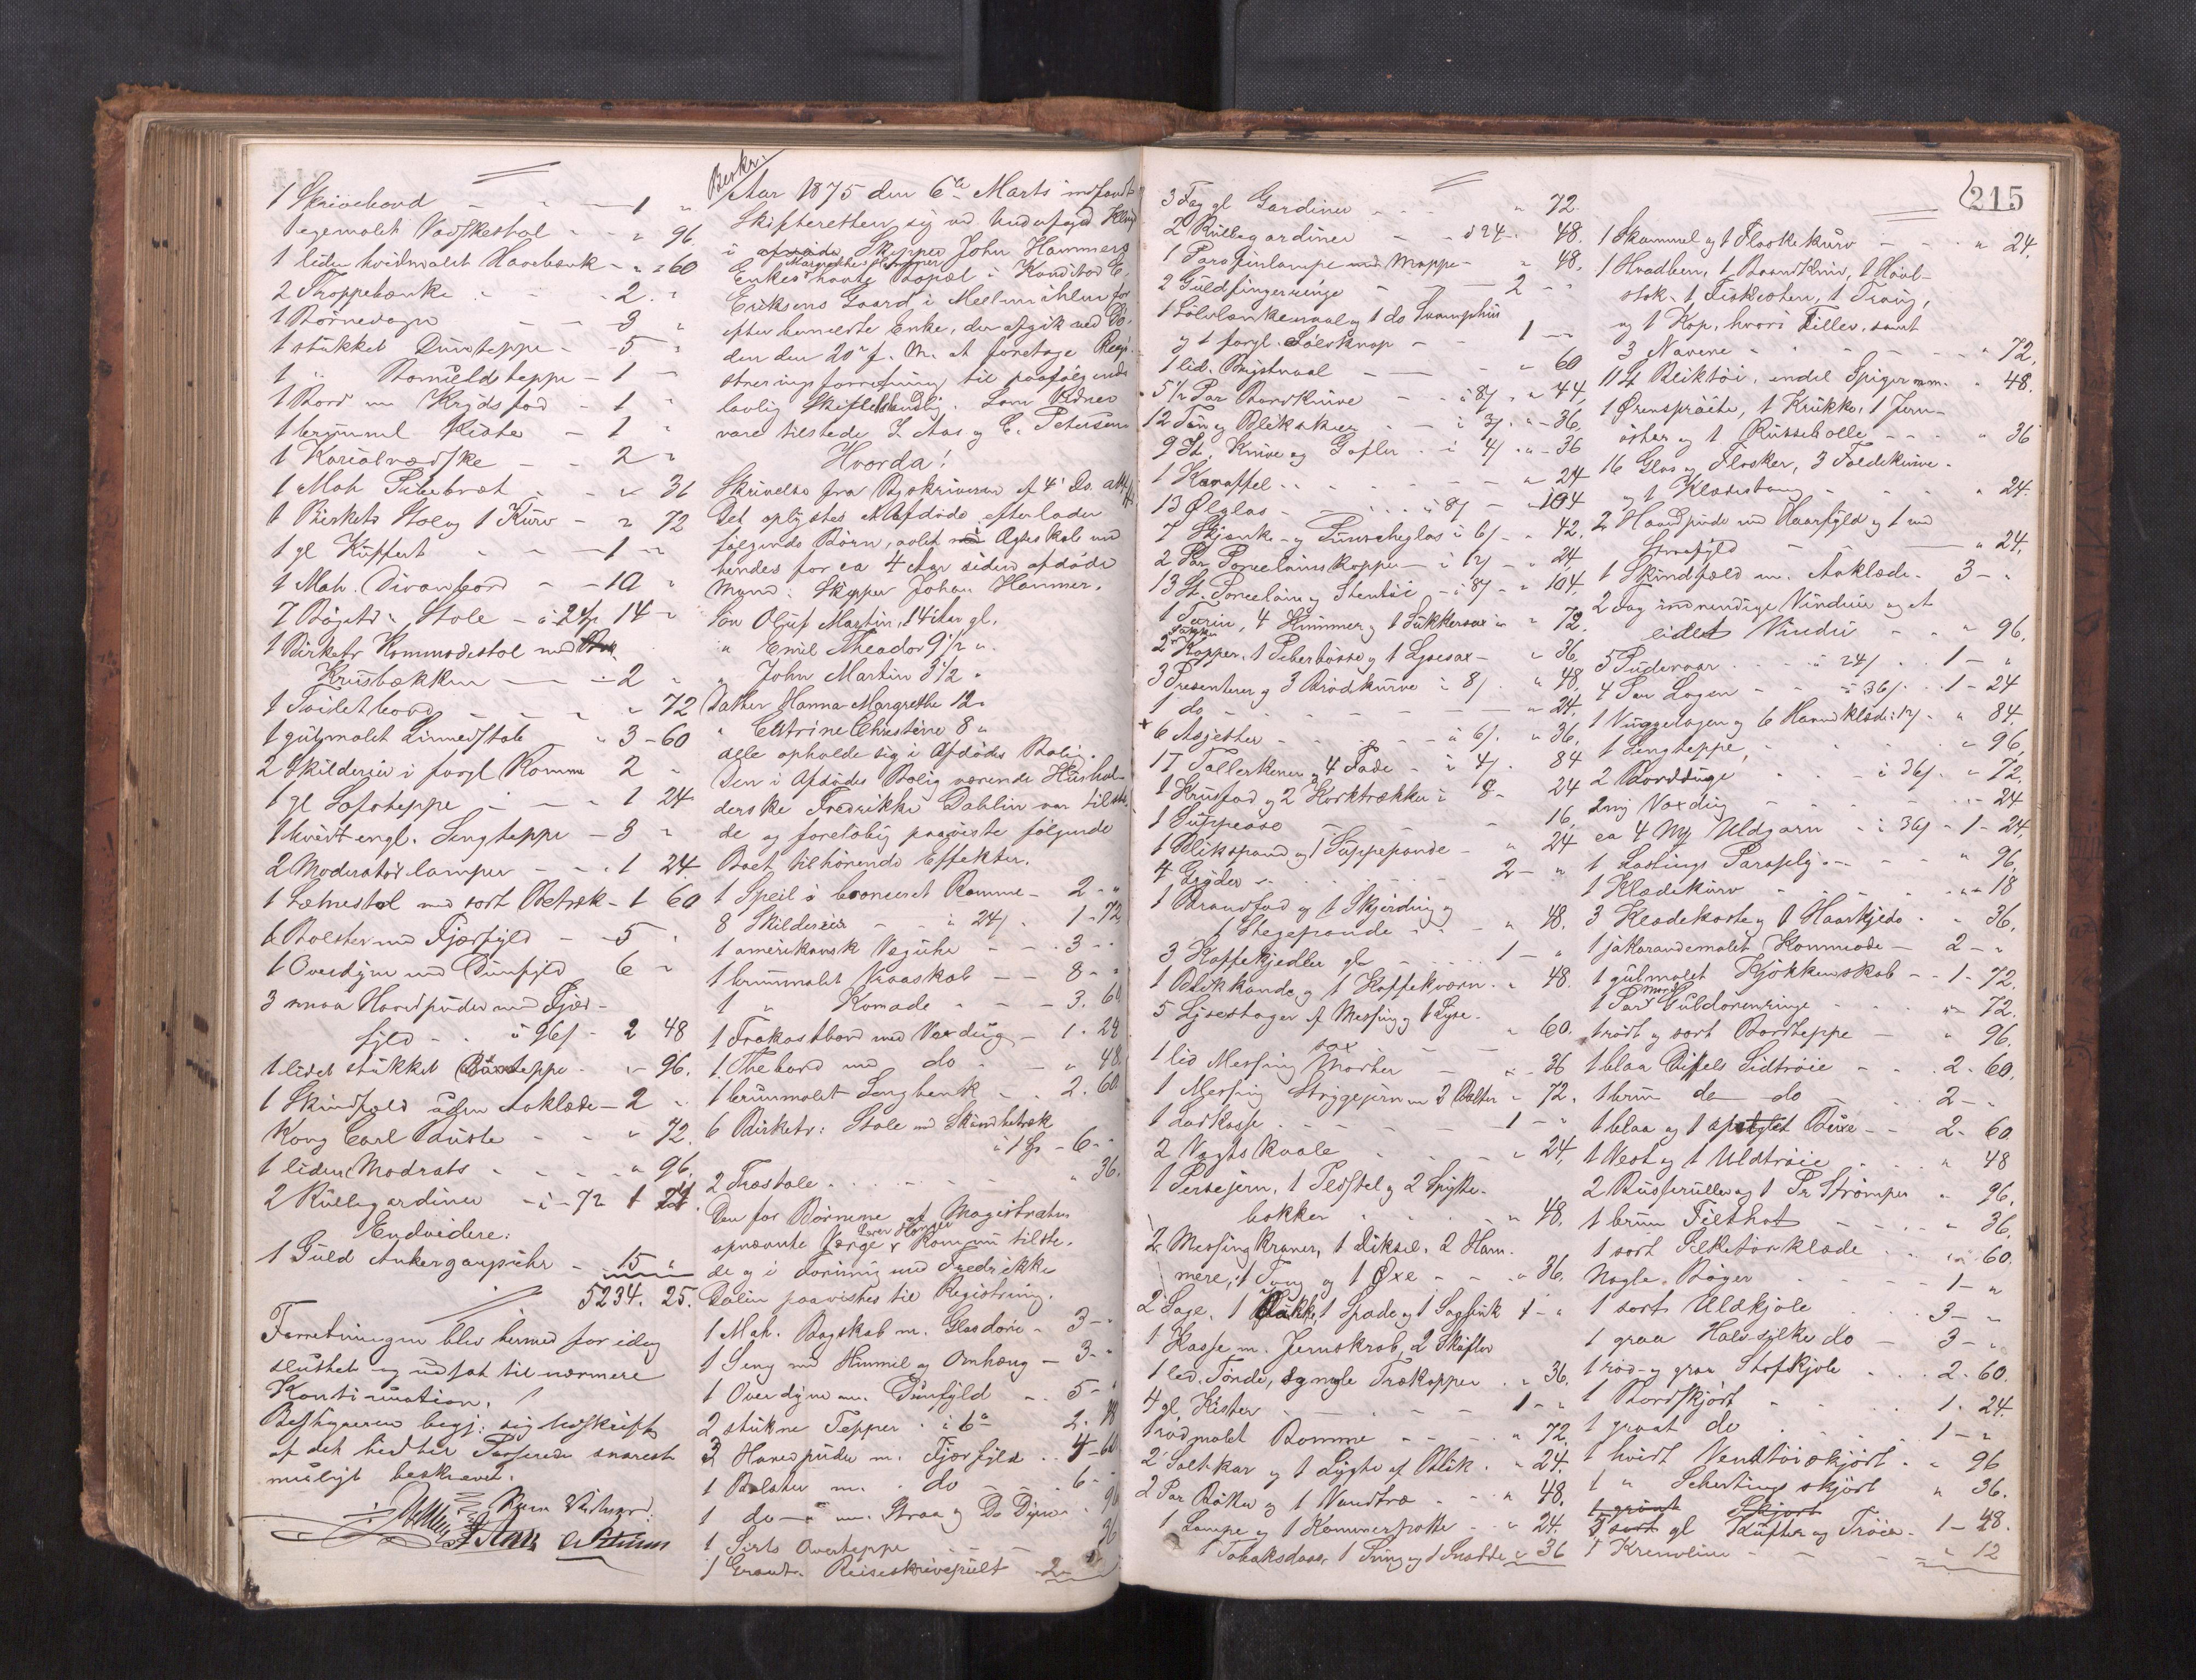 1 Skrivebord - - - 1 "
1 egemalet Vadskestol - - " 96.
1 liden hvidmalet Havebænk - " 60
2 Stoppebænke - - - 2. "
1 Børnevogn - - 3 "
1 stükket Dünteppe - - 5 "
1 " Bomüldsteppe - 1 "
1 Bord m Krydsfod - 1 "
1 brünmal Kiste - 1 "
1 Kariolvædske - - 2 "
1 Mah Pibebræt - - " 36
1 Birketr Stol og 1 Kürv - " 72
1 gl Küffert - - - 1 "
1 Mah. Divanbord - - 10 "
7 Bøgetr. Stole - à 2 Sp 14 "
1 Birketr Kommodestol med
Krüsbækken - - 2 "
1 Toiletbord - - - " 72
1 gülmalet Linnedstol " 3 - 60
2 Skilderier i forgl Ramme 2 "
1 gl Sofateppe - - - 1 24
1 hvidt engl. Sengteppe - 3 "
2 Moderatørlamper - - 1 24
1 Lænestol med sort Betræk - 1 60
1 Bolster med Fjærfyld - - 5 "
1 Overdyne med Dünfyld 6 "
3 smaa Hovedpüder med Fjær-
fyld - - à 96 s - 2 48
1 lidet stükket Barneteppe - " 96.
1 Skindfeld üden Aaklæde - 2 "
Kong Carl Büste - - " 72.
1 liden Madrats - - - " 96.
2 Rüllegardiner - à - 72 1
Endvidere:
1 Güld Ankergangsühr - 15 "
5234. 25.
Forretningen blev hermed for idag
slüttet og üdsat til nærmere
Kontinüation.
Bestyreren begj: sig Udskrift
af det hidtil Passerede snarest
müligt beskrevet.
Beskr.
Aar 1875 den 6te Marts indfandt
Skifteretten sig ved Underfoged
i afdøde Skipper John Hammers
Enkes Margrethe Hammer havte Bopæl i Konditor E.
Eriksens Gaard i Mellemihlen for
efter benævnte Enke, der afgik ved Dø-
den den 20de f. M. at foretage Regi-
streringsforretning til paafølgende
lovlig Skiftebehandlig. Som Vidner
vare tilstede J. Aas og C. Petersen
Hvorda!
Skrivelse fra Byskriveren af 4' ds.
Det oplystes at Afdøde efterlader
følgende Børn, avlet i Ægteskab med
hendes for ca 4 Aar siden afdøde
Mand: Skipper Johan Hammer.
Søn Oluf Martin, 14 Aar gl,
" Emil Theodor 9 1/2 "
" John Martin 3 1/2 "
Datter Hanna Margrethe 12 "
" Catrine Christine 8 "
alle opholde sig i Afdødes Bolig.
Den i Afdødes Bolig værende Hüshol-
derske Fredrikke Dahlin var tilste-
de og foreløbig paaviste følgende
Boet tilhørende Effekter.
1 Speil i bronceret Ramme - 2 - "
8 Skilderier - - à 24 s - 1 - 72
1 amerikansk Vægühr - - 3 - "
1 brünmalet Vraaskab - - 8 - "
1 " Komode - - - 3. 60
1 Frokostbord med Voxdüg - 1 - 24
1 Thebord med do - - " 48
1 brünmalet Sengbenk - - 2. 60
6 Birketr: Stole med Skindbetræk
à 1 Sp - 6 - "
2 Træstole - - - " 36.
Den for Børnene af Magistraten
opnævnte Værge kom nü tilste-
de og i Forening med Fredrikke
Dalin paavistes til Registrering.
1 Mah. Bogskab m. Glasdøre - 3 - "
1 Seng med Himmel og Omhæng - 3 - "
1 Overdyne m. Dünfyld - - 5 - "
2 stükne Tepper - à 6 2. 48
3 Hovedpüder m. Fjærfyld - - 4 - 60
1 Bolster m. do - - 6 - "
1 do - " m. Straa og Do Dyne - 96
1 Sirts Overteppe - - 36
1 Reiseskrivepült 2 -
3 Fag gl Gardiner - - - " 72
2 Rüllegardiner - - à 24 - 48.
1 Parafinlampe med Kuppe - " 48.
2 Güldfingerringe - - - 2 - "
1 Sølv og 1 do
og 1 forgl. Sølvknap - - 1 - "
1 lid. Brystnaal - - - " 60
5 1/2 Par Bordknive - - à 8 s - " 44.
12 Tin og Blikskeer - - à 3 s - " - 36.
9 St. Knive og Gafler - à 4 s - " - 36
1 Karaffel - - - - " 24
13 Ølglas - - - à 8 s - - 104
7 Skjænke- og Püncheglas à 6 s - " 42.
2 Par Porcelainskopper - à 12 s - " 24.
13 St. Porcelain og Stentøi - à 8 s - " 104.
1 Terin, 4 Himmer og 1 Sükkersax " " 72.
2 Kopper, 1 Peberbøsse og 1 Lysesax - " 36.
3 Presenterer og 3 Brødkürve à 8 s - " 48.
1 do - - - - - " 24.
6 Asjetter - - - à 6 s - " 36.
17 Tallerkener og 4 Fade - à 4 s - 84
1 Krüsfad og 2 Korktrækker à 8 - 24
1 Süppeøse - - - - 16.
1 Blikspand og 1 Süppepande - " 24
4 Gryder - - - - 2 - "
1 Brandfad og 1 Skjerding og
1 Stegepande - - - " 48.
3 Kaffekjedler gl - - - 1 - "
1 Blikkande og 1 Kaffekværn - " 48.
5 Lysestager af Messing og 1 Lyse-
sax - - " 60.
1 lid Messing Morter - - " - 36
1 Messing Strygejern m 2 Bolter - 72.
1 Ladkasse - - - - 1 - "
2 Vægtskaale - - - " 24.
1 Persejern, 1 Pidstel og 2 Spytte-
bakker - - - " 48.
2 Messing Kraner, 1 Diksel, 2 Ham-
mere, 1 Tang og 1 Øxe - - " 36.
2 Sage, 1 Bakke, 1 Spade og 1 1 - "
1 Kasse m. Jernskrab, 2 Skafler
1 led. Tønde, og nogle Trækopper - " 36.
4 gl. Kister - - - - 1 - "
1 rødmalet Bomme - - - " 72.
2 Saltkar og 1 Lygte af Blik - " 24.
2 Par Bøtter og 1 Vandtræ - - " 48.
1 Lampe og 1 Kammerpotte - - " 24.
1 Tobaksdaase 1 og 1 Snadde " 36
215
1 Skammel og 1 Flaskekürv - - - " 24.
1 Hvadben, 1 Baandkniv, 1 Høvl-
stok, 1 Fiskesten, 1 Traüg,
og 1 Kop, hvori Filler, samt
3 Navere - - - - " 72.
11 St Bliktøi, endel Spiger m.m. " 48.
1 Ørensprøite, 1 Krükke, 1 Jern-
øster og 1 Rüssebolle - - " 36
16 Glas og Flasker, 3 Foldeknive -
og 1 Klædestang - - - " 24.
2 Hovedpüde med Haarfyld og 1 med
Straafyld - - - " 24.
1 Skindfeld m. Aaklæde - 3 - "
2 Fag indvendige Vindüer og et
lidet Vindü - - " 96.
5 Püdevaar - - - à 24 s - 1 - "
4 Par Lagen - - à 36 s - 1 - 24
1 Vüggelagen og 6 Haandklæder à 12 s - " 84.
1 Sengteppe, - - - - " 96.
2 Borddüge - - - à 36 s - " 72.
2 ny Voxdüg - - - - " - 24
ca 4 Mk Uldgarn - - à 36 s - 1 - 24.
1 Lastings Paraply - - - " 96.
1 Klædekürv - - - - " 18
3 Klædekoste og 1 Haarkjede - " 36.
1 jakarandemalet Kommode - 2 - "
1 gülmalet Kjøkkenskab - - 1 - 72.
1 Par Güldørenringe - - " - 72.
1 rødt og sort Bordteppe - " 96.
1 blaa Diffels Sidtrøie - - 2 - 60.
1 brün do do - - 2 - "
1 blaa og 1 Büxe - - 2 - 60
1 Vest og 1 Uldtrøie - - " 48
2 Büsseruller og 1 Pr Strømper " 96.
1 brün Filthat - - - " 36.
1 sort Silketørklæde - - " 60.
Nogle Bøger - - - 1 - "
1 sort Uldkjole - - 3 - "
1 graa Halvsilke do - 3 - "
1 rød- og graa Stofkjole - - 2 - 60.
1 Stovskjørt - - - 1 - 24.
1 graat do - - - 1 - "
1 hvidt Vendtøiskjørt - - 96
1 " Schertings skjørt " 36.
1 grønt Skjørt
5 sort gl Küfter og Trøier - 1 - 48.
1 Krinoline - - - " 12